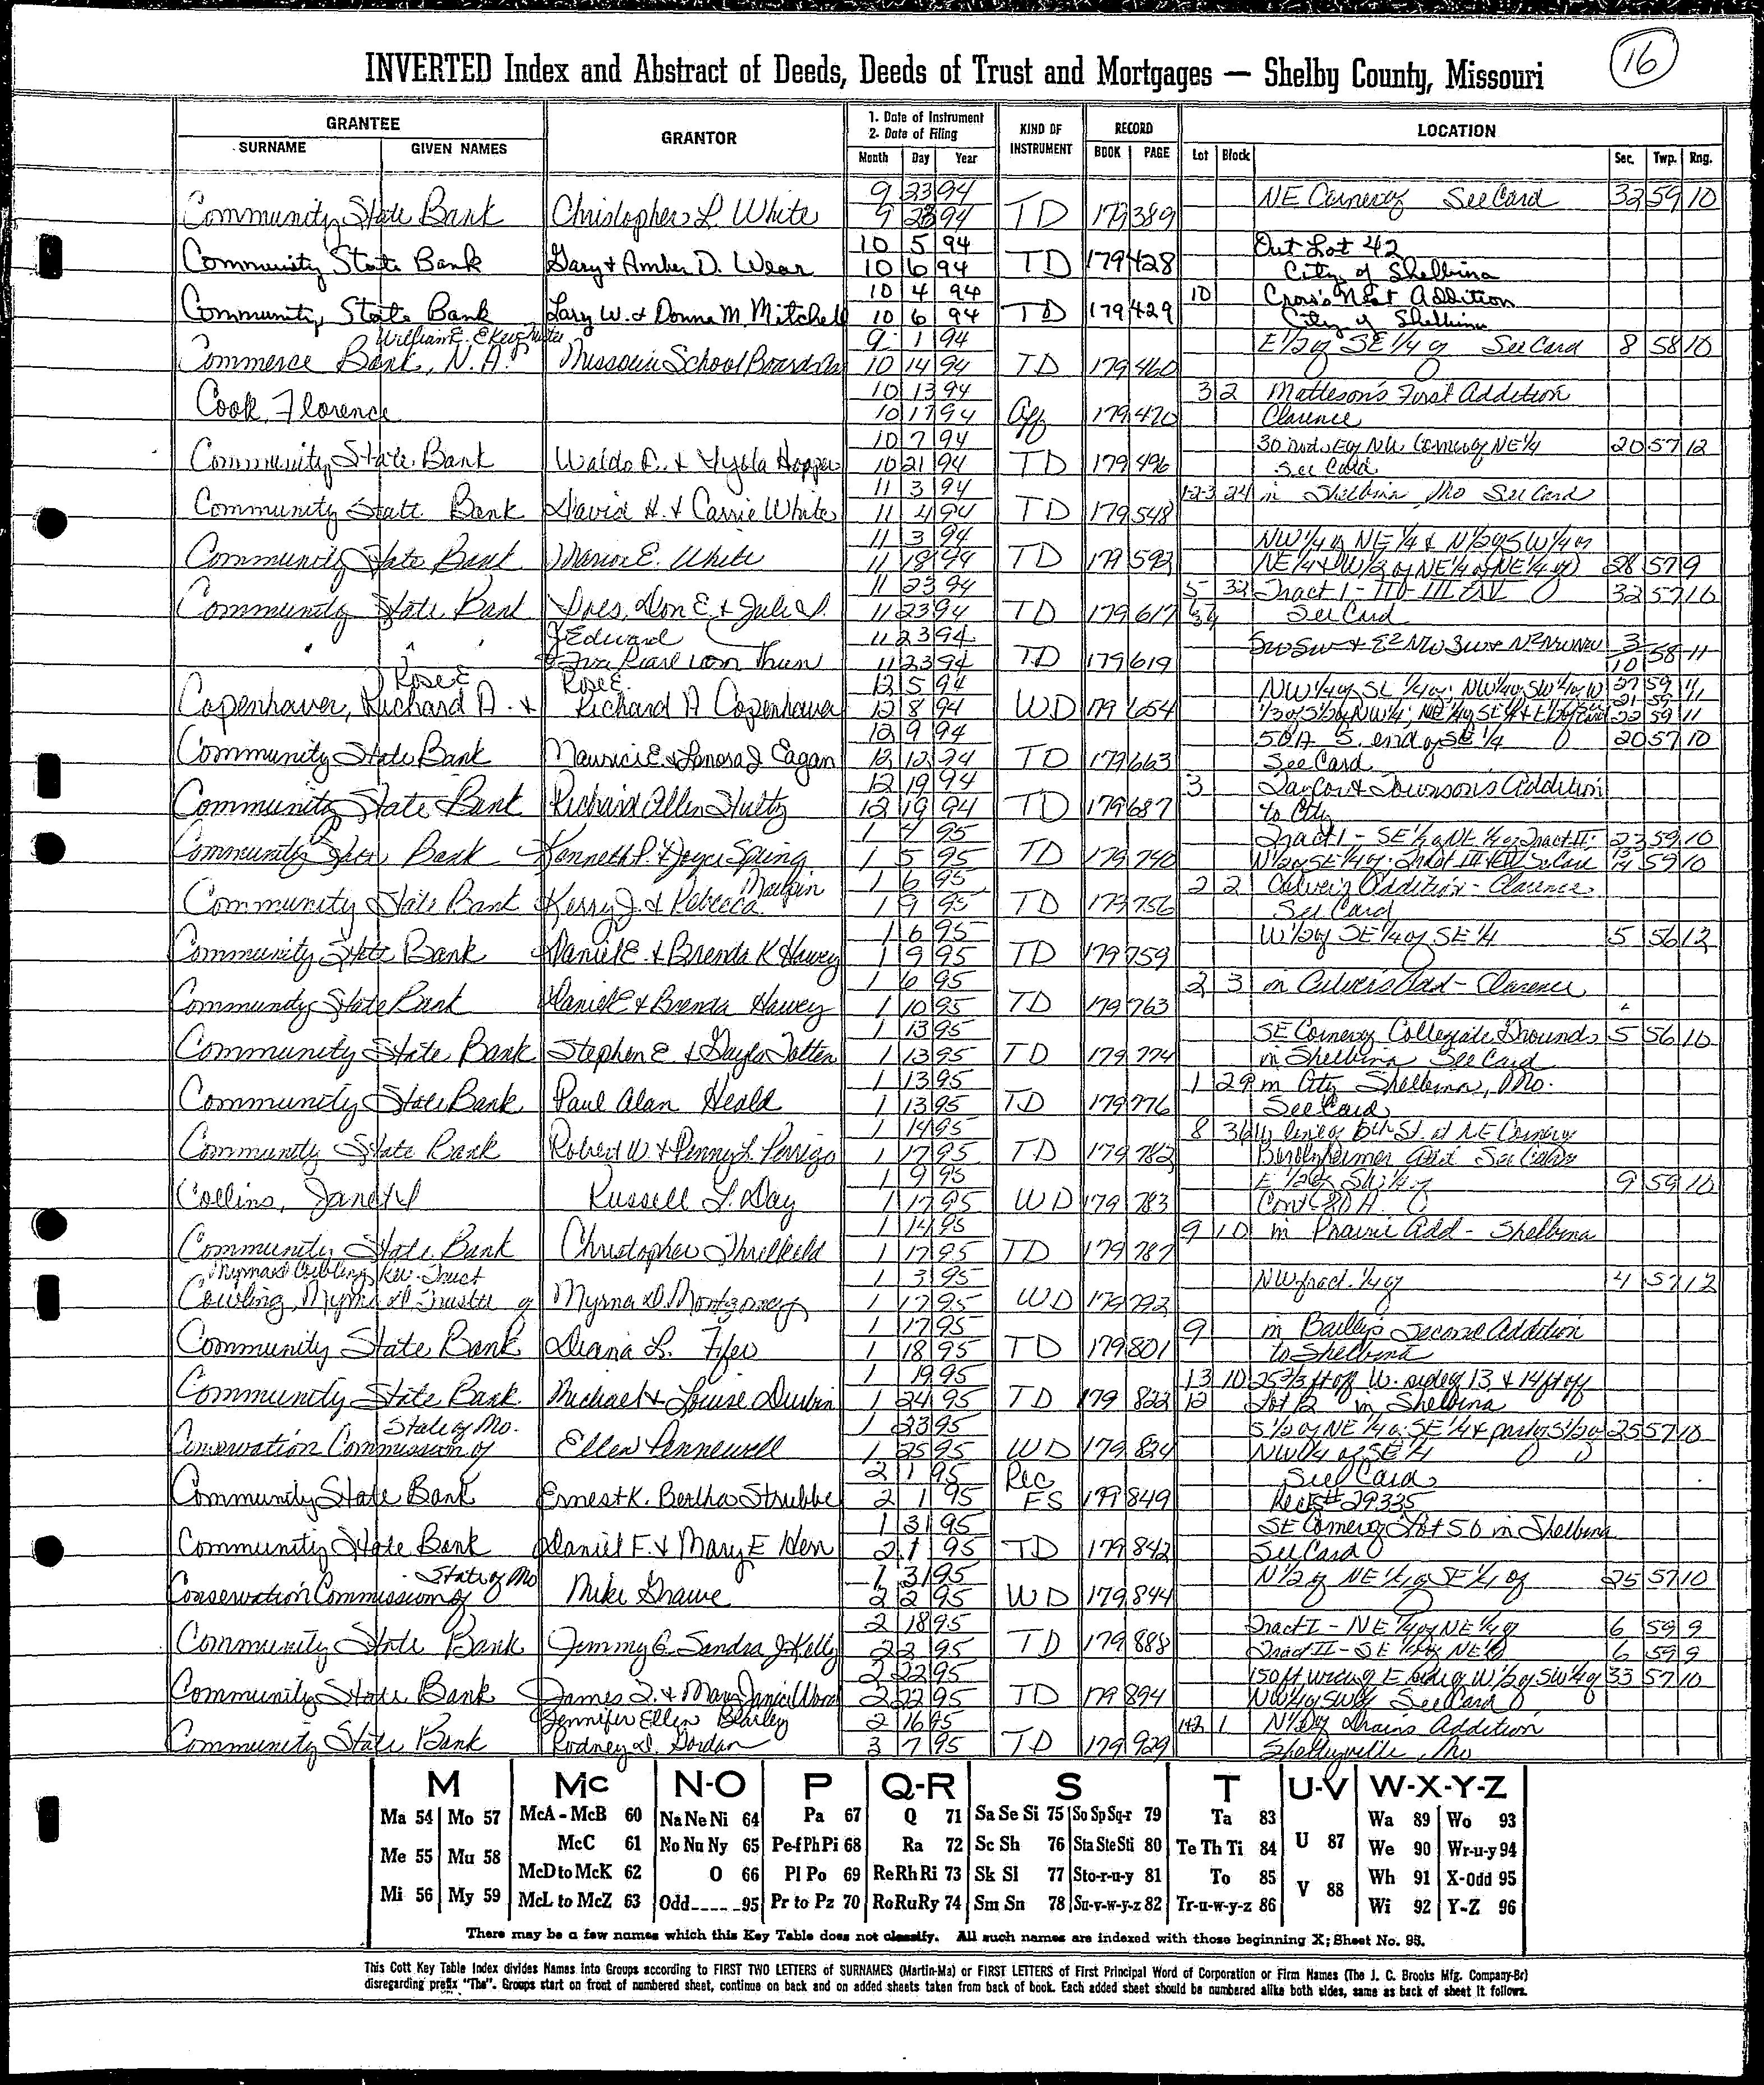 16
INVERTED Index and Abstract of Deeds, Deeds of Trust and Mortgages — Shelby County, Missouri
GRANTEE GRANTOR 1. Date of Instrument 2. Date of Filing KIND OF INSTRUMENT RECORD LOCATION
SURNAME GIVEN NAMES Month Day Year BOOK PAGE Lot Block Sec. Twp. Rng.
9 23 94 NE Corner of See Card 32 59 10
Community State Bank Christopher L. White 9 28 94 TD 179 389
10 5 94 Out Lot 42
Community State Bank Gary & Amber D. Wear 10 6 94 TD 179 428 City of Shelbina
10 4 94 10 Cross's Addition
Community State Bank Lary W. & Donna M. Mitchell 10 6 94 TD 179 429 City of Shelbina
William E. 9 1 94 E 1/2 of SE 1/4 of See Card 8 58 10
Commerce Bank, N.A. Missouri School Boards 10 14 94 TD 179 460
10 13 94 3 2 Matteson's First Addition
Cook, Florence 10 17 94 Aff 179 470 Clarence
10 7 94 30 rods E of NW Corner of NE 1/4 20 57 12
Community State Bank Waldo & Hopper 10 21 94 TD 179 496 See Card
11 3 94 1-2-3 24 in Shelbina Mo See Card
Community State Bank David H. & Carrie White 11 4 94 TD 179 548
11 3 94 NW 1/4 of NE 1/4 & N 1/2 of SW 1/4 of
Community State Bank Marion E. White 11 18 94 TD 179 592 NE 1/4 & W 1/2 of NE 1/4 of NE 1/4 of 28 57 9
11 23 94 5 32 Tract I - II & III 32 57 10
Community State Bank Don E. & Julie 11 23 94 TD 179 617 See Card
Edward 11 23 94 SW SW & E2 NW SW & N2 NW NW 3
" " Pearl von Thun 11 23 94 TD 179 619 10 58 11
Rose E. Rose E. 12 5 94 NW 1/4 of SE 1/4 of; NW 1/4 of SW 1/4 of W 27 59 11
Copenhaver, Richard A. & Richard A Copenhaver 12 8 94 WD 179 654 22 59 11
12 9 94 50A S. end of SE 1/4 20 57 10
Community State Bank Maurice E. & Lenora J. Eagan 12 12 94 TD 179 663 See Card
12 19 94 3 Taylor & Towson's Addition
Community State Bank Richard Allen Stultz 12 19 94 TD 179 687 to City
1 4 95 Tract I - SE 1/4 of NE 1/4 of Tract II: 23 59 10
Community State Bank Kenneth P. & Joyce Spring 1 5 95 TD 179 740 W 1/2 of SE 1/4 of 14 59 10
Maupin 1 6 95 2 2 Culver's Addition - Clarence
Community State Bank Kerry J. & Rebecca 1 9 95 TD 179 756 See Card
1 6 95 W 1/2 of SE 1/4 of SE 1/4 5 56 12
Community State Bank Daniel E. & Brenda K Hawey 1 9 95 TD 179 759
1 6 95 2 3 in Culver's Add - Clarence
Community State Bank Daniel E & Brenda Hawey 1 10 95 TD 179 763
1 13 95 SE Corner of Collegiate Grounds 5 56 10
Community State Bank Stephen E. & Gayla Totten 1 13 95 TD 179 774 in Shelbina See Card
1 13 95 1 29 in City Shelbina, Mo.
Community State Bank Paul Alan Heald 1 13 95 TD 179 776 See Card
1 14 95 8 36 line of 6th St. at NE Corner of
Community State Bank Robert W. & Penny L. Perrigo 1 17 95 TD 179 782 Add See Card
1 9 95 E 1/2 of SW 1/4 of 9 59 10
Collins, Janet Russell L. Day 1 17 95 WD 179 783 Cont 80 A.
1 14 95 9 10 in Prairie Add - Shelbina
Community State Bank Christopher Threlkeld 1 17 95 TD 179 787
Myrna D Cowling Rev. Trust 1 3 95 NW fract. 1/4 of 4 57 12
Cowling, Myrna D Trustee of Myrna D. Montgomery 1 17 95 WD 179 792
1 17 95 9 in Bailey's Second Addition
Community State Bank Diana L. 1 18 95 TD 179 801 to Shelbina
1 19 95 13 10 25 2/3 ft off W. side of 13 & 14 ft off
Community State Bank Michael & Louise Durbin 1 24 95 TD 179 822 12 Lot 12 in Shelbina
State of Mo. 1 23 95 S 1/2 of NE 1/4 of SE 1/4 & part of S 1/2 of 25 57 10
Conservation Commission of Ellen Pennewell 1 25 95 WD 179 824 NW 1/4 of SE 1/4
2 1 95 Rec See Card
Community State Bank Ernest K. Bertha Strubbe 2 1 95 FS 179 849 Rec # 29335
1 31 95 SE Corner of Lot 56 in Shelbina
Community State Bank Daniel F. & Mary E 2 1 95 TD 179 842 See Card
State of Mo 1 31 95 N 1/2 of NE 1/4 of SE 1/4 of 25 57 10
Conservation Commission of Mike Grawe 2 2 95 WD 179 844
2 18 95 Tract I - NE 1/4 of NE 1/4 of 6 59 9
Community State Bank Jimmy E. Sandra J. Kelly 2 22 95 TD 179 888 Tract II - SE 1/4 of NE 1/4 6 59 9
2 22 95 150 ft E side of W 1/2 of SW 1/4 of 33 57 10
Community State Bank James & Mary Janice 2 22 95 TD 179 894 NW 1/4 of SW 1/4 See Card
Jennifer Ellen 2 16 95 1+2 1 N 1/2 of Drain's Addition
Community State Bank Rodney D. Jordan 3 7 95 TD 179 929 Shelbyville, Mo
M Mc N-O P Q-R S T U-V W-X-Y-Z
Ma 54 Mo 57 McA - McB 60 Na Ne Ni 64 Pa 67 Q 71 Sa Se Si 75 So Sp Sq-r 79 Ta 83 Wa 89 Wo 93
Me 55 Mu 58 McC 61 No Nu Ny 65 Pe-f Ph Pi 68 Ra 72 Sc Sh 76 Sta Ste Sti 80 Te Th Ti 84 U 87 We 90 Wr-u-y 94
McD to McK 62 O 66 Pl Po 69 Re Rh Ri 73 Sk Sl 77 Sto-r-u-y 81 To 85 Wh 91 X-Odd 95
Mi 56 My 59 McL to McZ 63 Odd-----95 Pr to Pz 70 Ro Ru Ry 74 Sm Sn 78 Su-v-w-y-z 82 Tr-u-w-y-z 86 V 88 Wi 92 Y-Z 96
There may be a few names which this Key Table does not classify. All such names are indexed with those beginning X; Sheet No. 95.
This Cott Key Table Index divides Names into Groups according to FIRST TWO LETTERS of SURNAMES (Martin-Ma) or FIRST LETTERS of First Principal Word of Corporation or Firm Names (The J. C. Brooks Mfg. Company-Br)
disregarding prefix "The". Groups start on front of numbered sheet, continue on back and on added sheets taken from back of book. Each added sheet should be numbered alike both sides, same as back of sheet it follows.